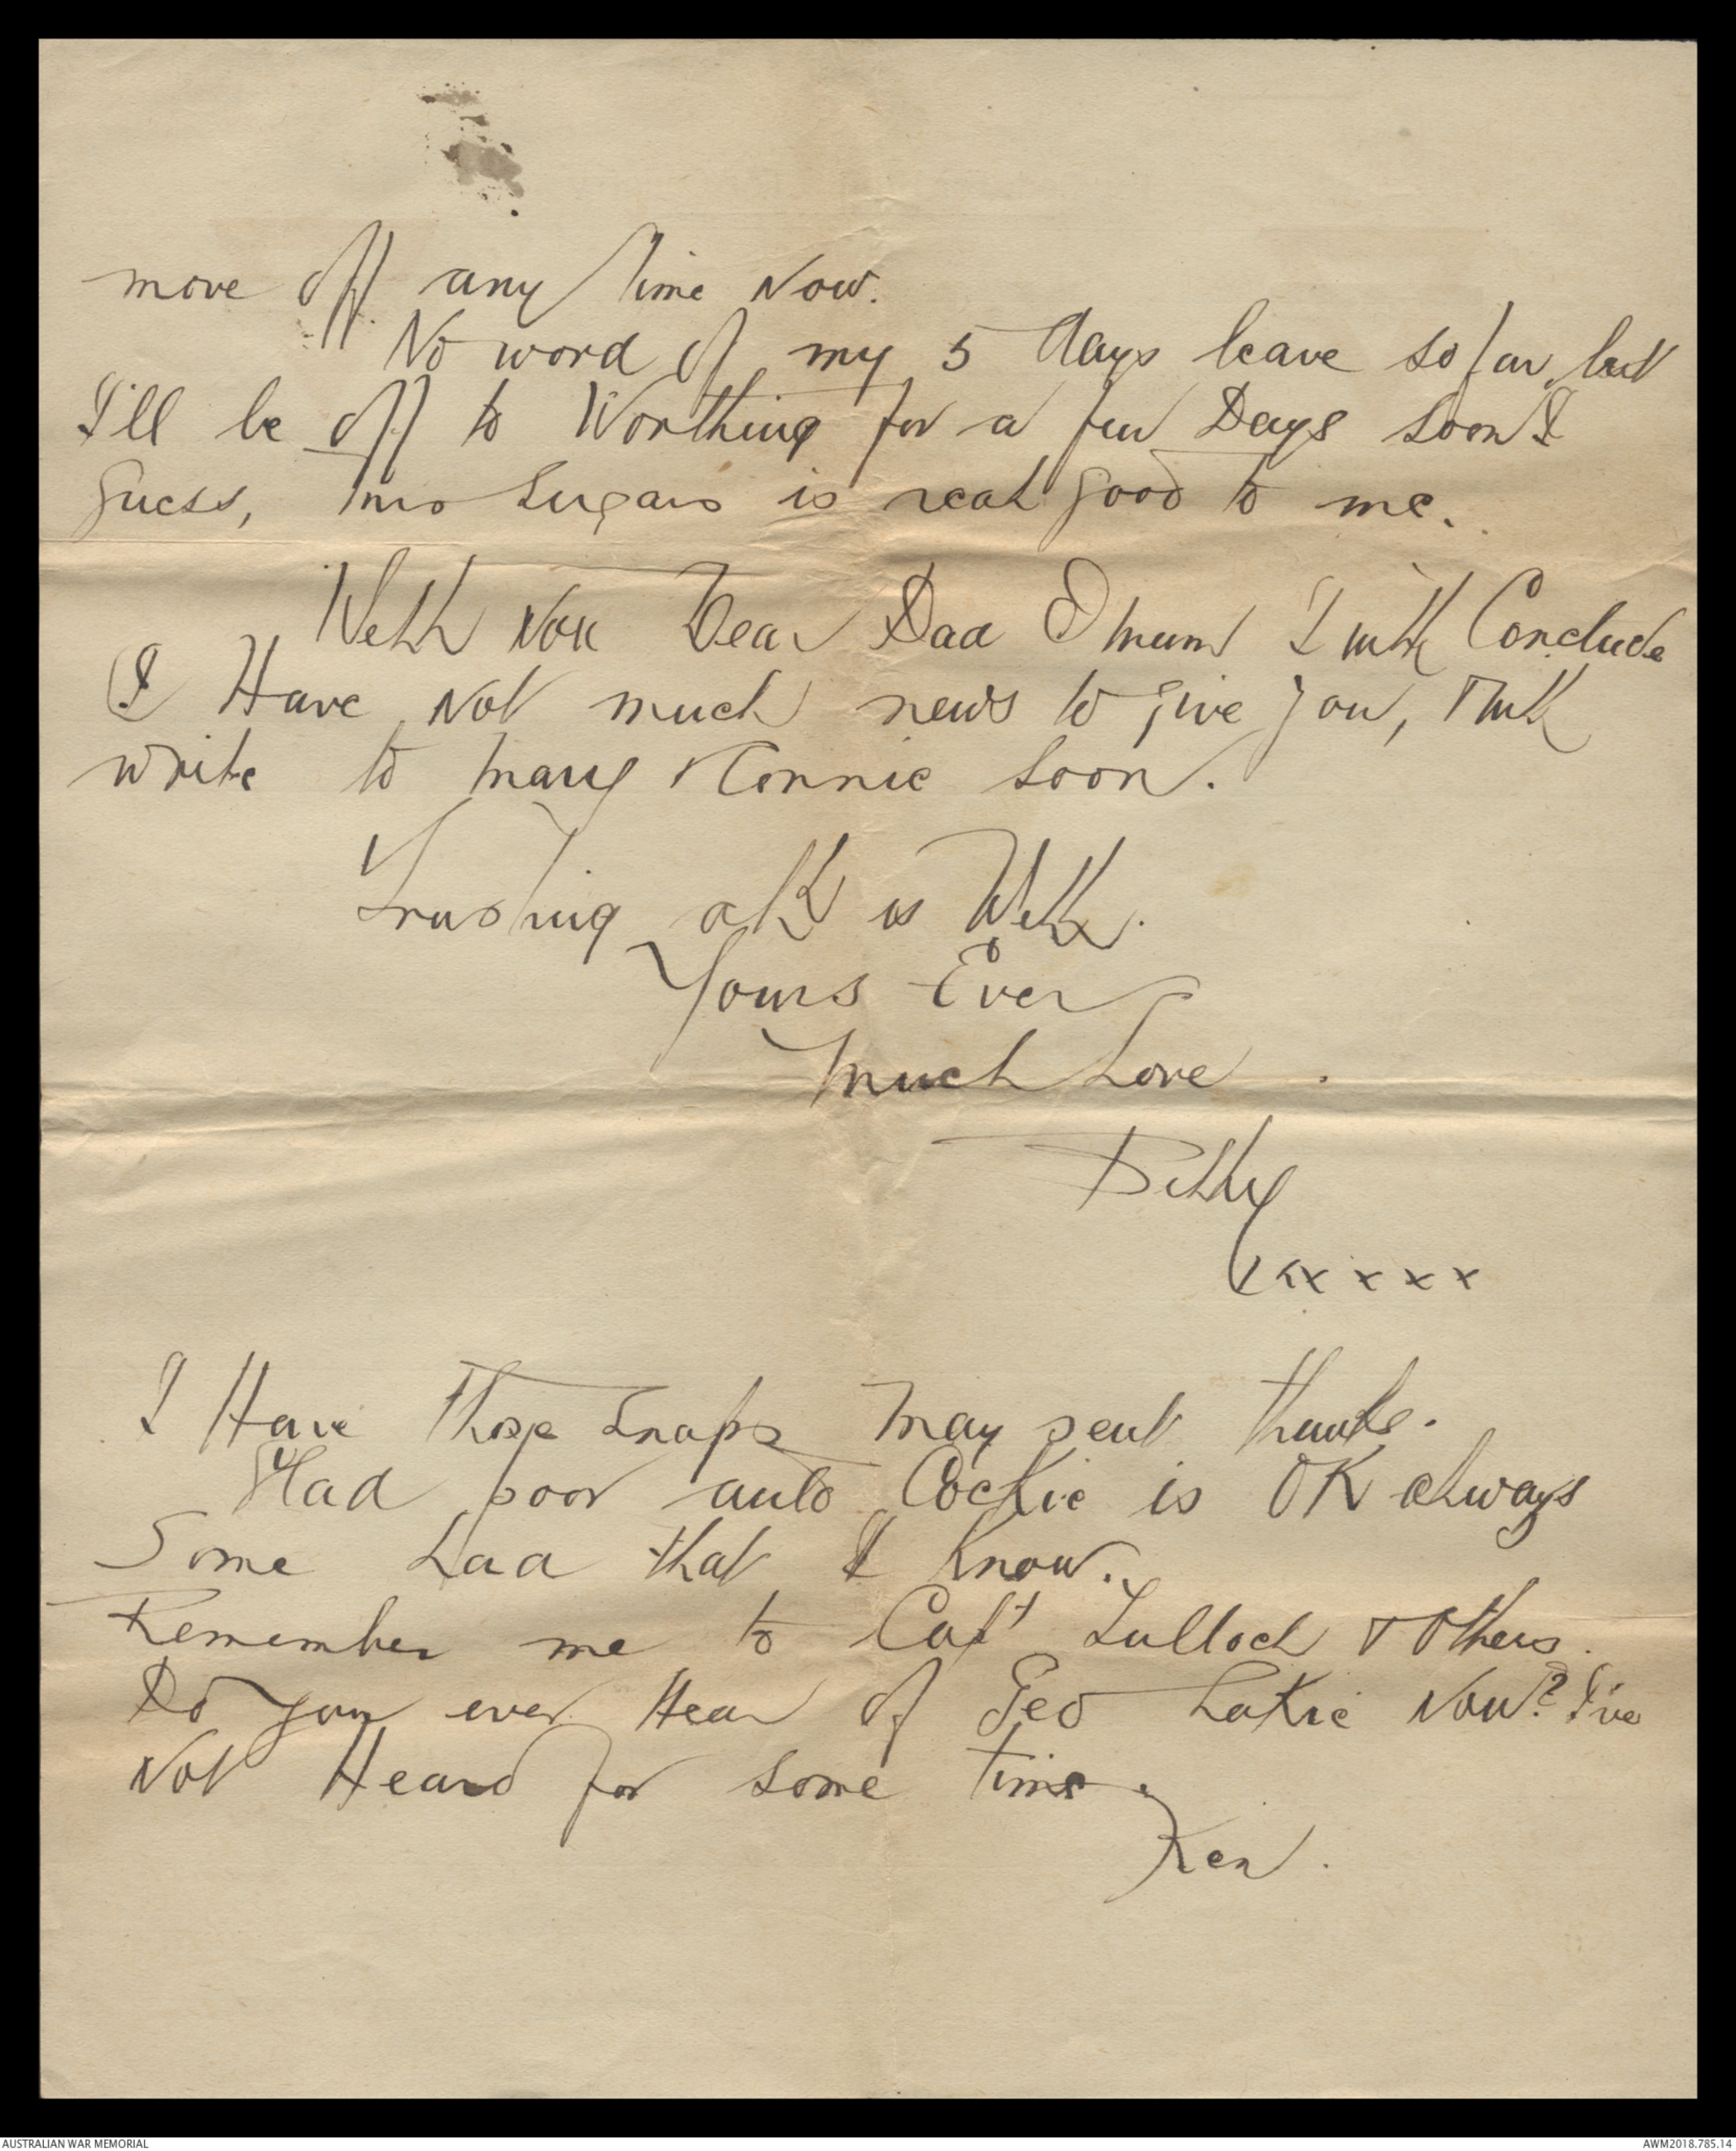 move off any time Now.
No word of my 5 days leave so far, but
I'll be off to Worthing for a few Days soon I
guess, Mrs is real good to me.
Well Now Dear Dad & mum I will Conclude
I Have Not much news to give you, will
write to Mary & Connie soon.
Trusting all is Well.
Yours Ever
Much Love
Billy
xxxxx
I Have those Snaps May sent thanks.
Glad poor auld Cockie is OK always
Some Lad that I know.
Remember me to Capt Tulloch & Others.
Do you ever Hear of Geo Lakie Now? I've
Not Heard for some time.
Ken.
AUSTRALIAN WAR MEMORIAL
AWM2018.785.14